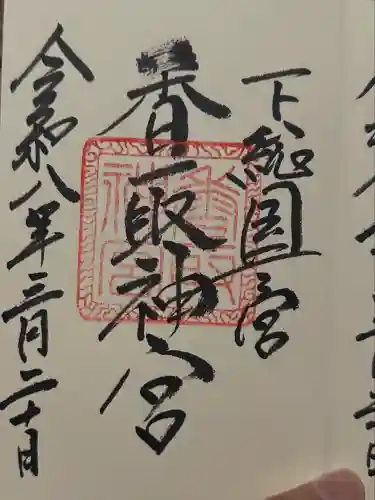 下総国一宮
香取神宮
香取神宮
令和八年三月二十日